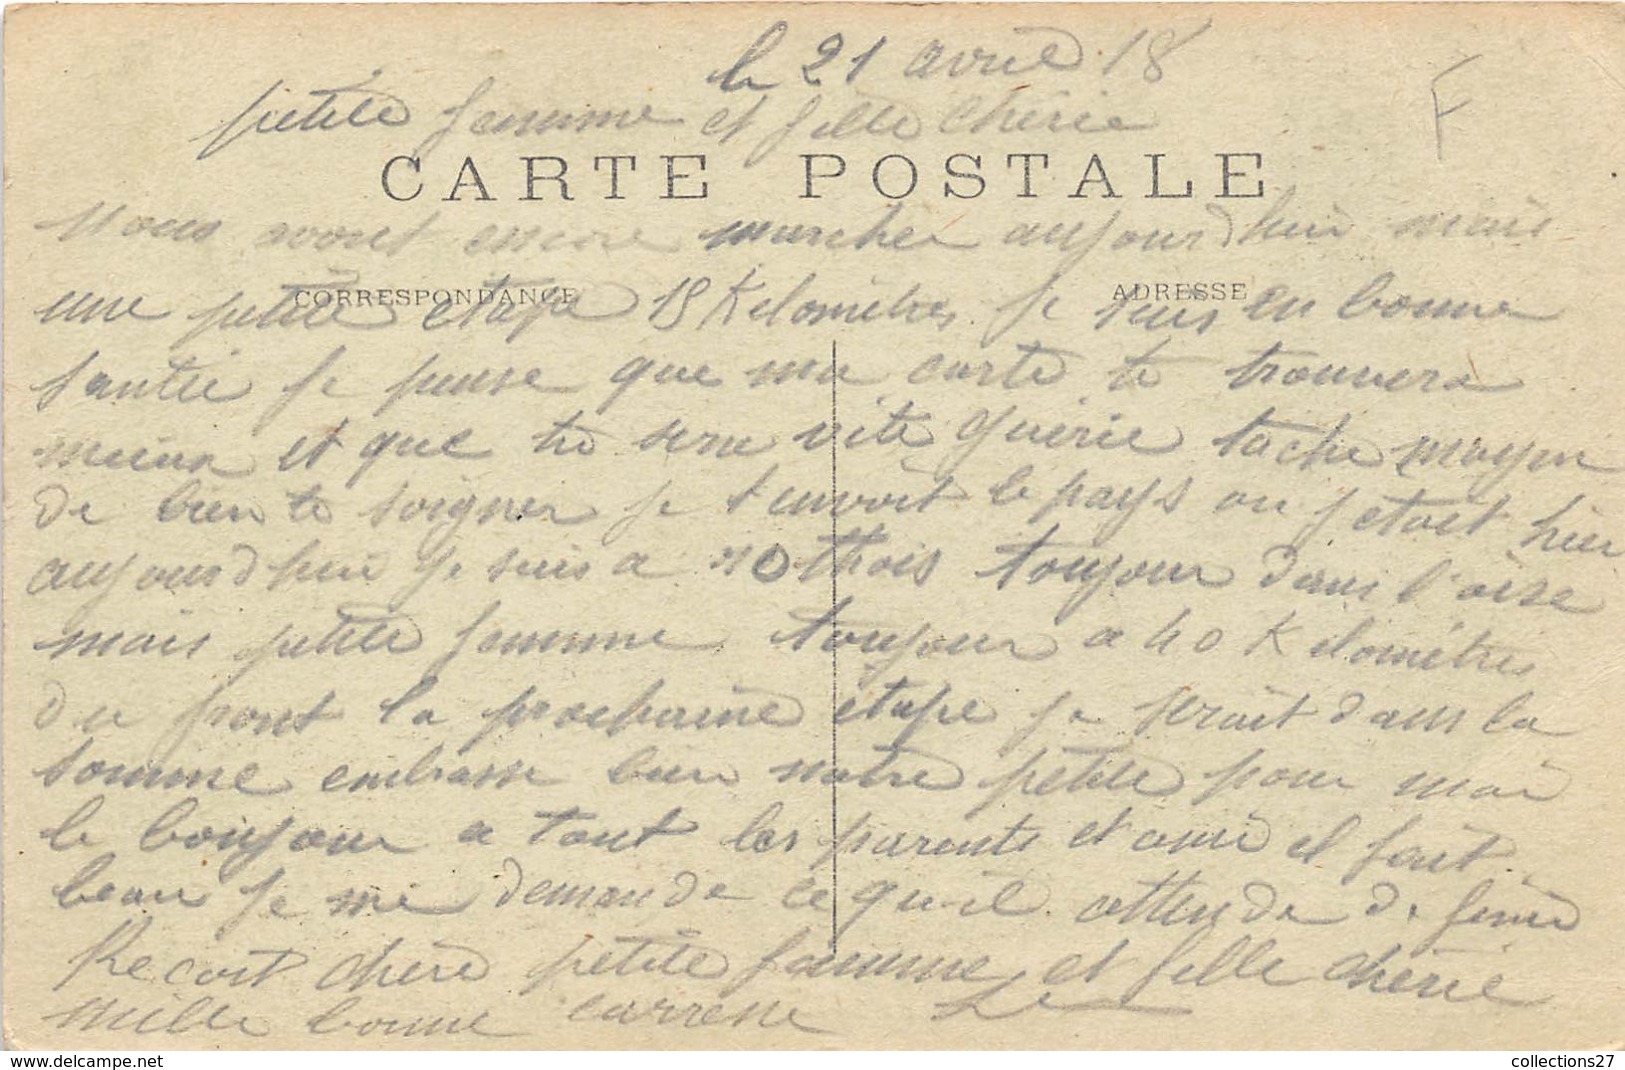 le 21 avril 18
F
petite famme et fille cherie
CARTE POSTALE
nous avont encore marcher aujourdhui mais
CORRESPONDANCE
ADRESSE
une petite etape 18 Kilomètres je suis en bonne
santée je pense que ma carte te trouvera
mieux et que tu sera vite guérie tache moyen
de bien te soigner je t envoit le pays ou j etait hier
aujourdhui je suis a toujour dans l'oise
mais petite famme toujour a 40 Kilomètres
du front la prochaine etape je serait dans la
somme embrasse bien notre petite pour moi
le bonjour a tout les parents et ami il fait
beau je me demande ce qu-il attende de
Recoit chere petite famme et fille cherie
mille bonne carresse
collections27